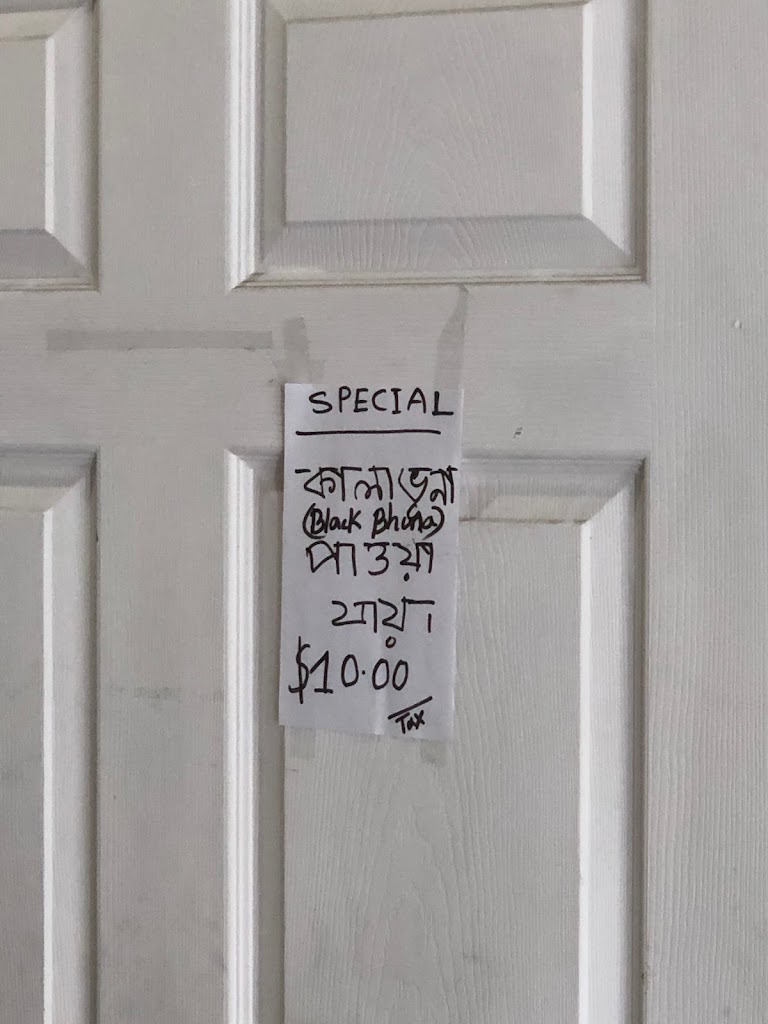 SPECIAL
কালাভুনা
(Black Bhuna)
পাওয়া
যায়
$10.00
Tax